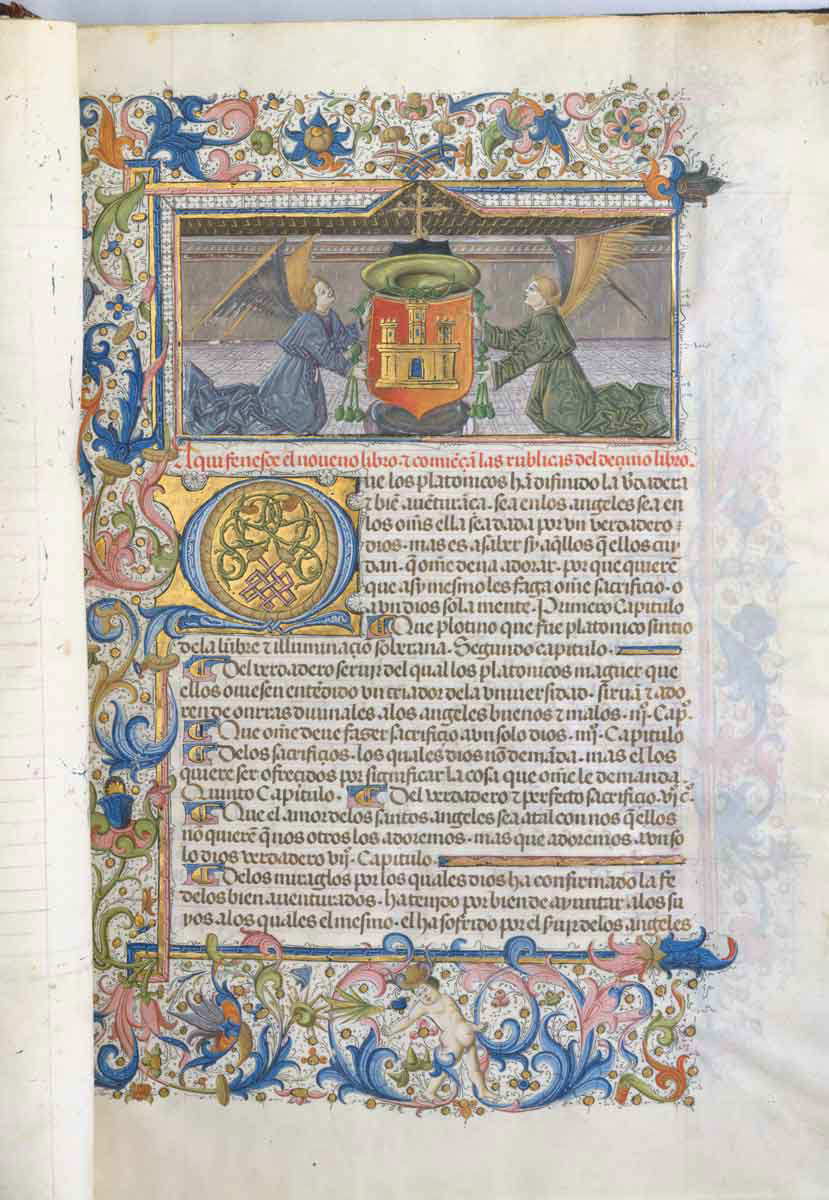 Aqui fenesçe el noueno libro ⁊ comiẽçã las rublicas del deçimo libro·
Que los platonicos hã difinido la v̾dadera
⁊ biẽ auẽturãça· sea en los angeles sea en
los om̃s ella sea dada por vn verdadero
dios· mas es a saber sy aq̃llos q̃ ellos cuy
dan· q̃ om̃e deua adorar· por que quierẽ
que asy mesmo les faga om̃e sacrifiçio· o
a vn dios sola mente· Primero Capitulo
Que plotino que fue platonico sintio
de la lũbre ⁊ illuminaçiõ soberana· Segundo capitulo·
Del verdadero seruir del qual los platonicos maguer que
ellos ouiesen entẽdido vn criador de la vniuersidad· siruiã ⁊ ado
ren de onrras diuinales a los angeles buenos ⁊ malos· iijº· Capº·
Que om̃e deue faser sacrifiçio a vn solo dios· iiijº· Capitulo
De los sacrifiçios· los quales dios nõ demãda· mas el los
quiere ser ofreçidos por significar la cosa que om̃e le demanda·
Quinto Capitulo· Del verdadero ⁊ perfecto sacrifiçio· vjº cº·
Que el amor de los santos angeles sea atal con nos q̃ ellos
nõ quierẽ q̃ nos otros los adoremos· mas que adoremos a vn so
lo dios verdadero vijº· Capitulo·
De los miraglos por los quales dios ha confirmado la fe
de los bien auenturados· ha tenido por bien de ayuntar a los su
yos a los quales el mesmo· el ha sofrido por el s̃uir de los angeles